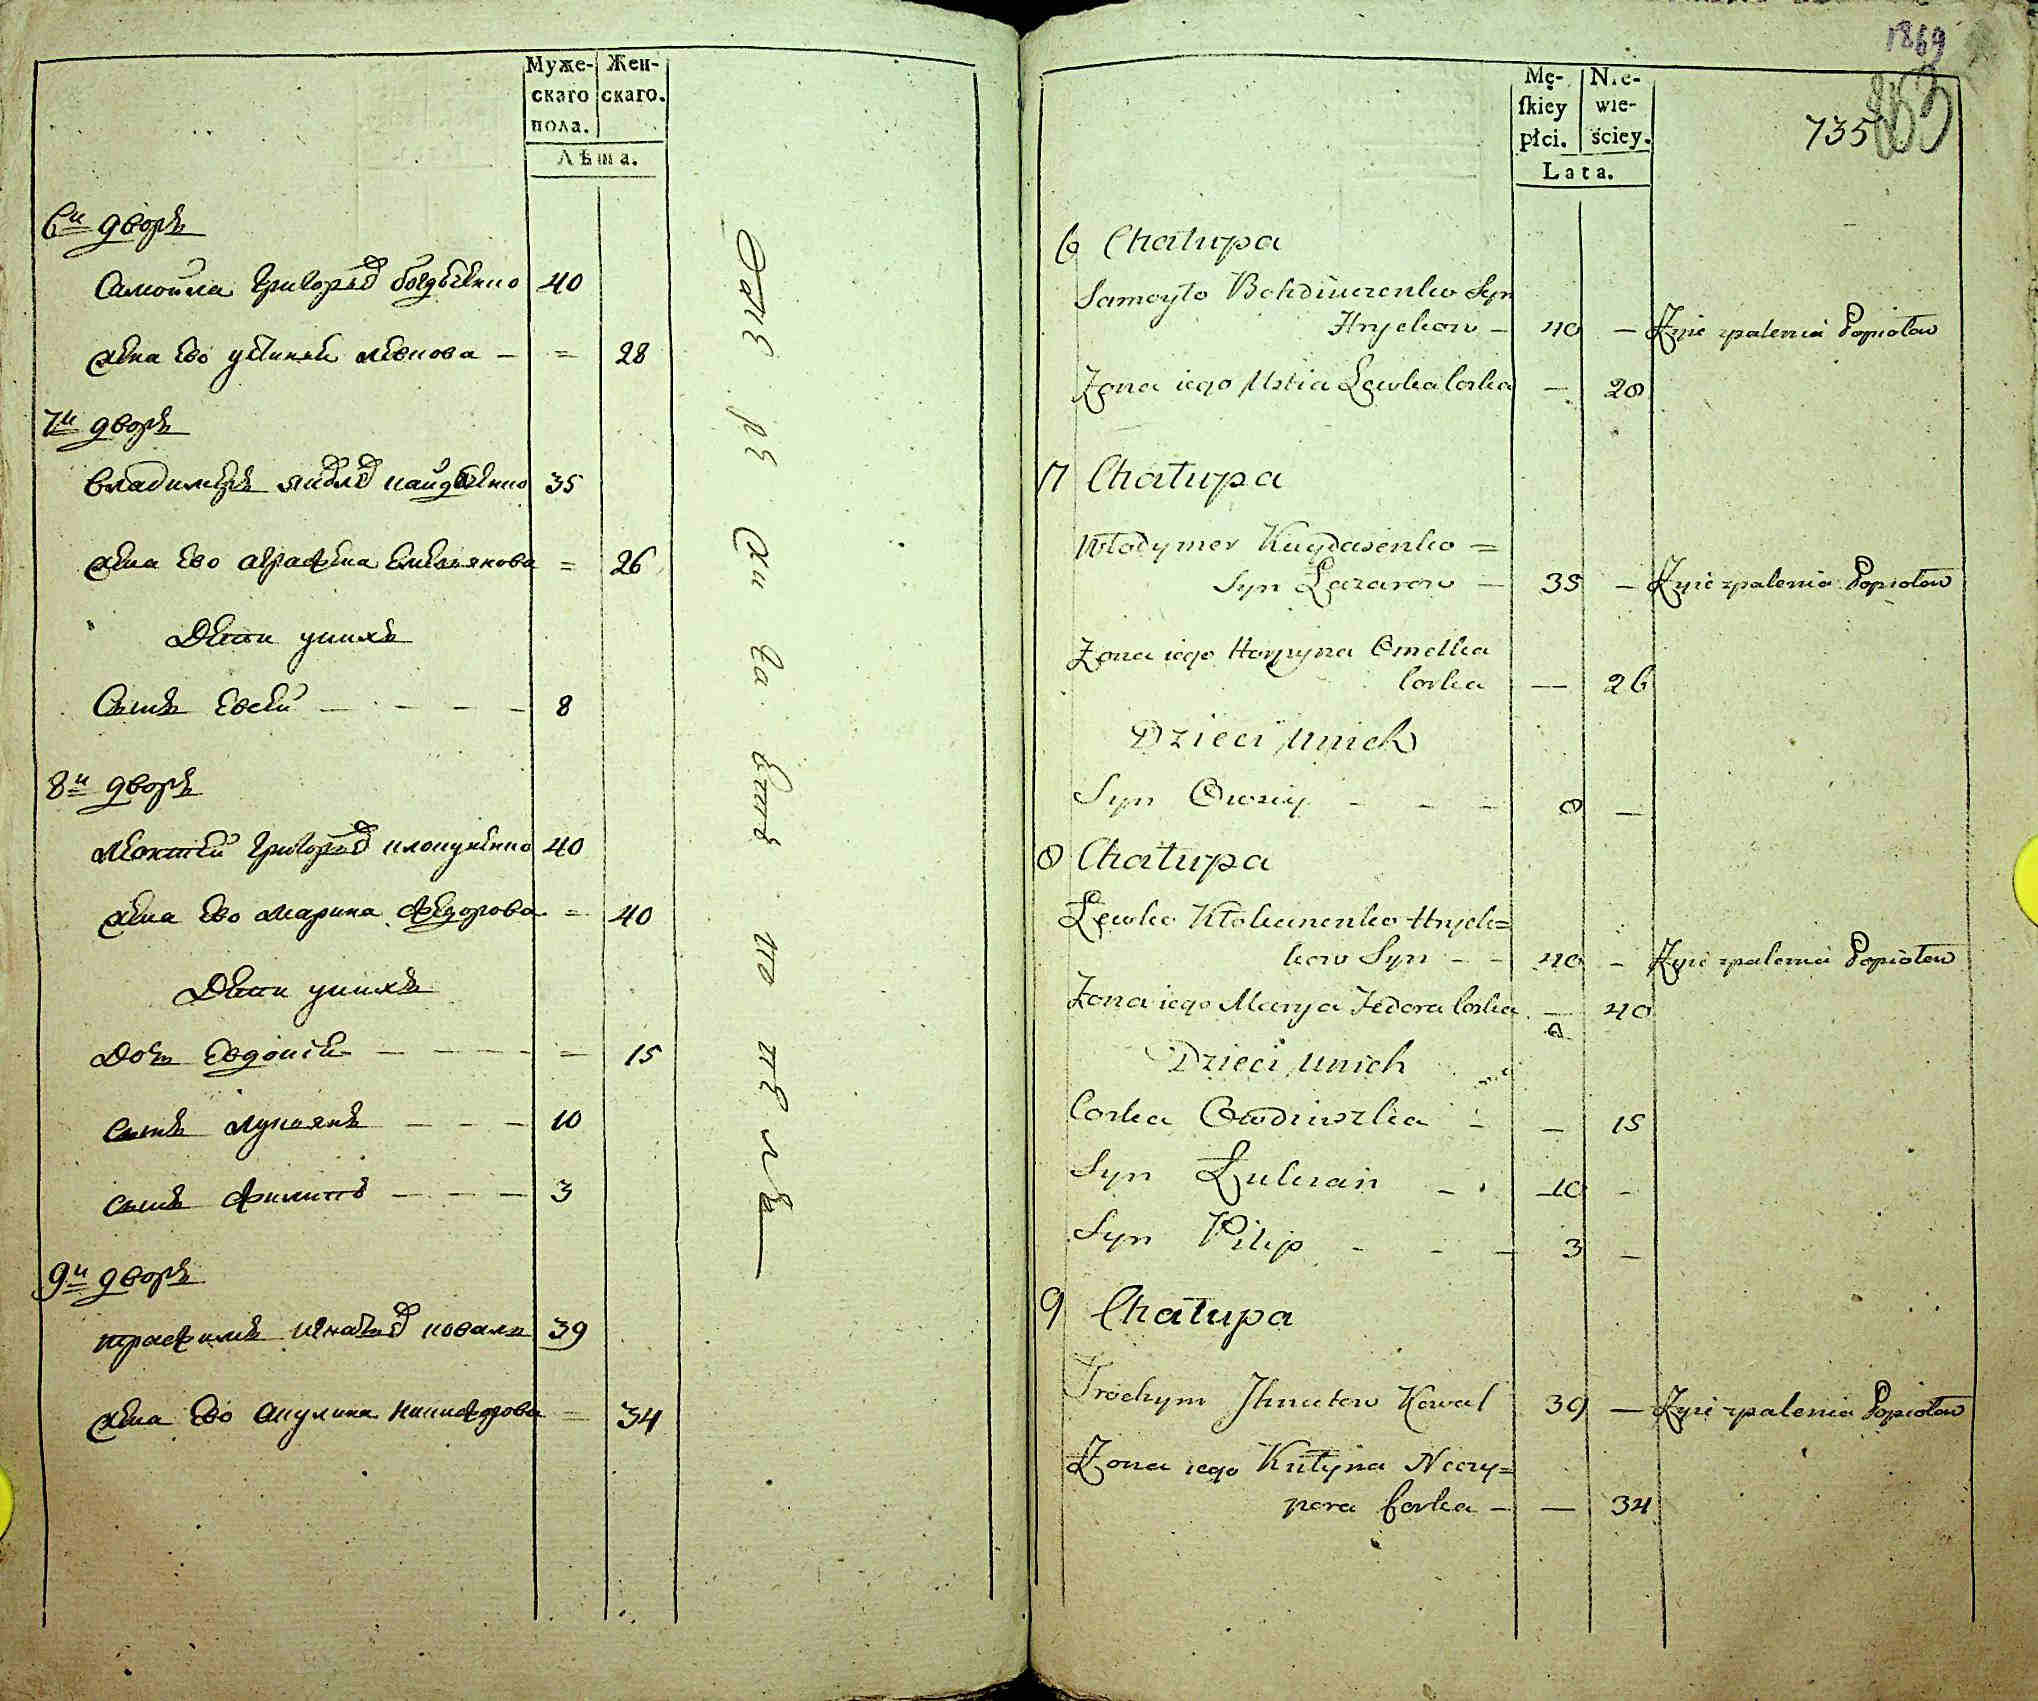 Муже- Жен-
скаго скаго.
пола.
Лѣта.
6й дворъ
Самойла Григорьевъ 40
жена ево Устинья Левкова - = 28
7й дворъ
Владимеръ 35
жена ево Аграфена Емельянова = 26
Дети у нихъ
Сынъ Евсей - - - - 8
8й дворъ
Леонтей Григорьевъ 40
жена ево Марина Федорова = 40
Дети у нихъ
Дочь Евдокия - - - - = 15
сынъ Лукьянъ - - - 10
сынъ Филипъ - - - 3
9й дворъ
Трафимъ Игнатьевъ Коваль 39
жена ево Акулина Никифорова = 34
1869
Mę- Nie-
skiey wie-
płci. ściey.
Lata.
735
6 Chałupa
Samoyło Syn
Hryckow - 40 - Żyie z palenia Popiołow
Żona iego Ustia Lewka Corka - 28
7 Chałupa
Włodymer Kaydasenko =
Syn Łazarow - 35 - Żyie z palenia Popiołow
Żona iego Horpyna Omelka
Corka - 26
Dzieci u nich
Syn Owsiy - - - 8 -
8 Chałupa
Lewko Kłokunenko Hryck=
kow Syn - - 40 - Żyie z palenia Popiołow
Żona iego Marya Fedora Corka - 40
Dzieci u nich
Corka Owdiuszka - - 15
Syn Łukian - - 10 -
Syn Pilip - - - 3 -
9 Chałupa
Trochym Ihnatow Kowal 39 - Żyie z palenia Popiołow
Żona iego Kułyna Neczy=
pora Corka - - 34